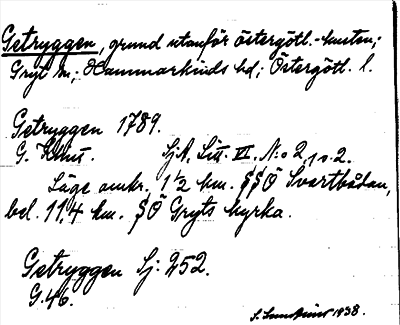 Getryggen, grund utanför östergötl.-kusten;
Gryt sn; Hammarkinds hd; Östergötl. l.
Getryggen 1789.
G. Klint. SjA, Litt. VI, N:o 2, 1 o. 2.
Läge omkr. 1 ½ km. SSÖ Svartbådan,
bel. 11,4 km. SÖ Gryts kyrka.
Getryggen Sj: 252.
G. 46.
1938.